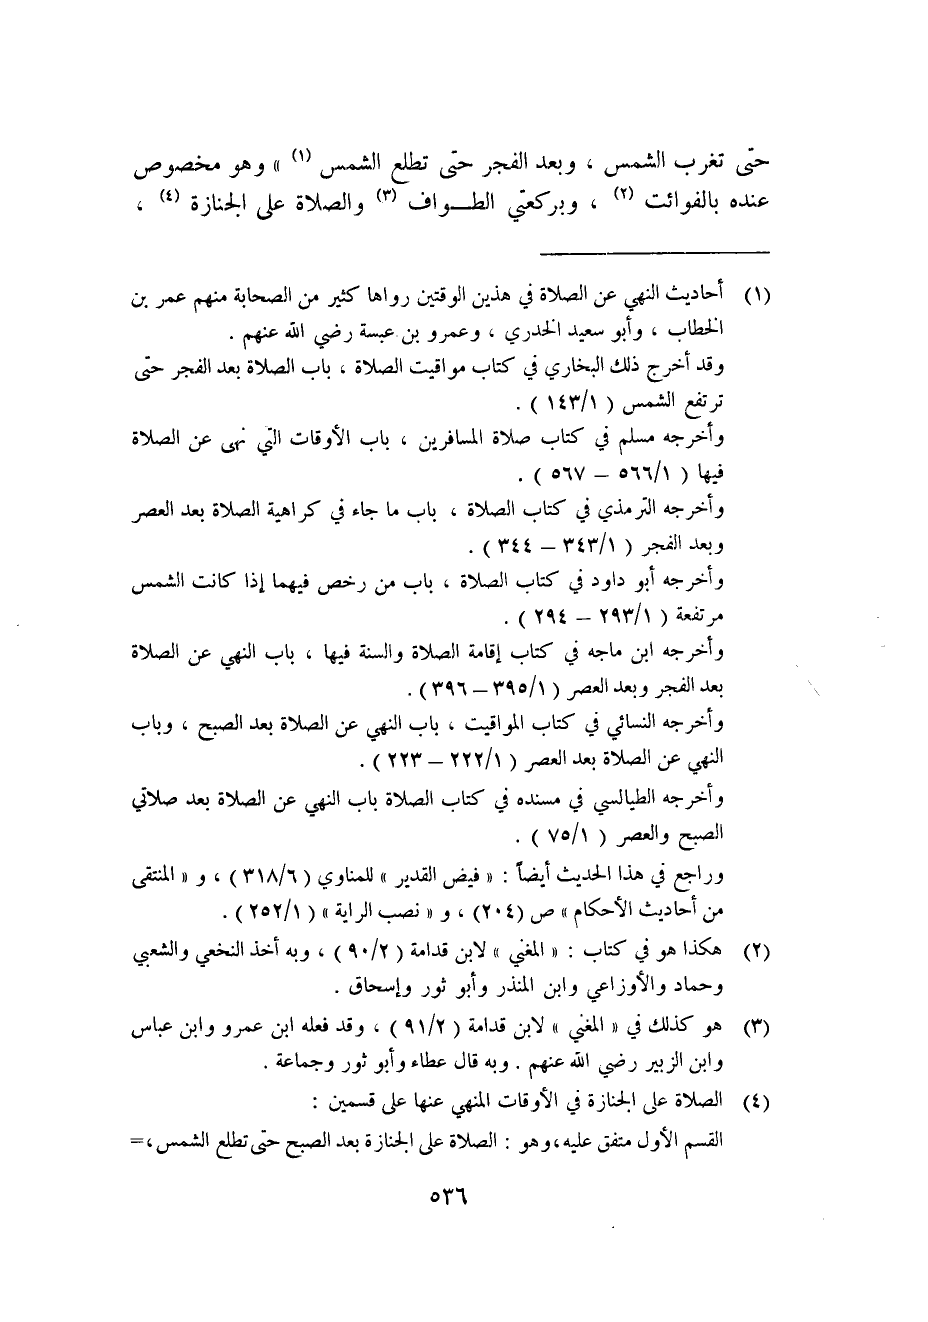 حتّى تغرب الشمس ، وبعد الفجر حتّى تطلع الشمس (١) » وهو مخصوص
عنده بالفوائت (٢) ، وبركعتي الطـــواف (٣) والصلاة على الجنازة (٤) ،
(١) أحاديث النهي عن الصلاة في هذين الوقتين رواها كثير من الصحابة منهم عمر بن
الخطاب ، وأبو سعيد الخدري ، وعمرو بن عبسة رضي الله عنهم .
وقد أخرج ذلك البخاري في كتاب مواقيت الصلاة ، باب الصلاة بعد الفجر حتّى
ترتفع الشمس ( ١٤٣/١ ) .
وأخرجه مسلم في كتاب صلاة المسافرين ، باب الأوقات التي نهى عن الصلاة
فيها ( ٥٦٦/١ – ٥٦٧ ) .
وأخرجه الترمذي في كتاب الصلاة ، باب ما جاء في كراهية الصلاة بعد العصر
وبعد الفجر ( ٣٤٣/١ – ٣٤٤ ) .
وأخرجه أبو داود في كتاب الصلاة ، باب من رخص فيهما إذا كانت الشمس
مرتفعة ( ٢٩٣/١ – ٢٩٤ ) .
وأخرجه ابن ماجه في كتاب إقامة الصلاة والسنة فيها ، باب النهي عن الصلاة
بعد الفجر وبعد العصر ( ٣٩٥/١ – ٣٩٦ ) .
وأخرجه النسائي في كتاب المواقيت ، باب النهي عن الصلاة بعد الصبح ، وباب
النهي عن الصلاة بعد العصر ( ٢٢٢/١ – ٢٢٣ ) .
وأخرجه الطيالسي في مسنده في كتاب الصلاة باب النهي عن الصلاة بعد صلاتي
الصبح والعصر ( ٧٥/١ ) .
وراجع في هذا الحديث أيضاً : « فيض القدير » للمناوي ( ٣١٨/٦ ) ، و « المنتقى
من أحاديث الأحكام » ص (٢٠٤) ، و « نصب الراية » ( ٢٥٢/١ ) .
(٢) هكذا هو في كتاب : « المغني » لابن قدامة ( ٩٠/٢ ) ، وبه أخذ النخعي والشعبي
وحماد والأوزاعي وابن المنذر وأبو ثور وإسحاق .
(٣) هو كذلك في « المغني » لابن قدامة ( ٩١/٢ ) ، وقد فعله ابن عمرو وابن عباس
وابن الزبير رضي الله عنهم . وبه قال عطاء وأبو ثور وجماعة .
(٤) الصلاة على الجنازة في الأوقات المنهي عنها على قسمين :
القسم الأول متفق عليه،وهو : الصلاة على الجنازة بعد الصبح حتّى تطلع الشمس،=
٥٣٦